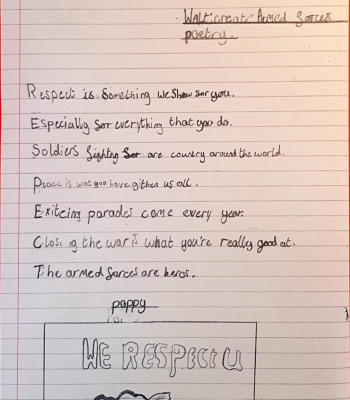 WALT: create Armed forces
poetry.
Respect is something we show for you.
Especially for everything that you do.
Soldiers fighting for are country around the world.
Peace is wat you have githen us all.
Exiteing parades come every year.
Closing the war is what you're really good at.
The armed forces are heros.
poppy
WE RESPECT U